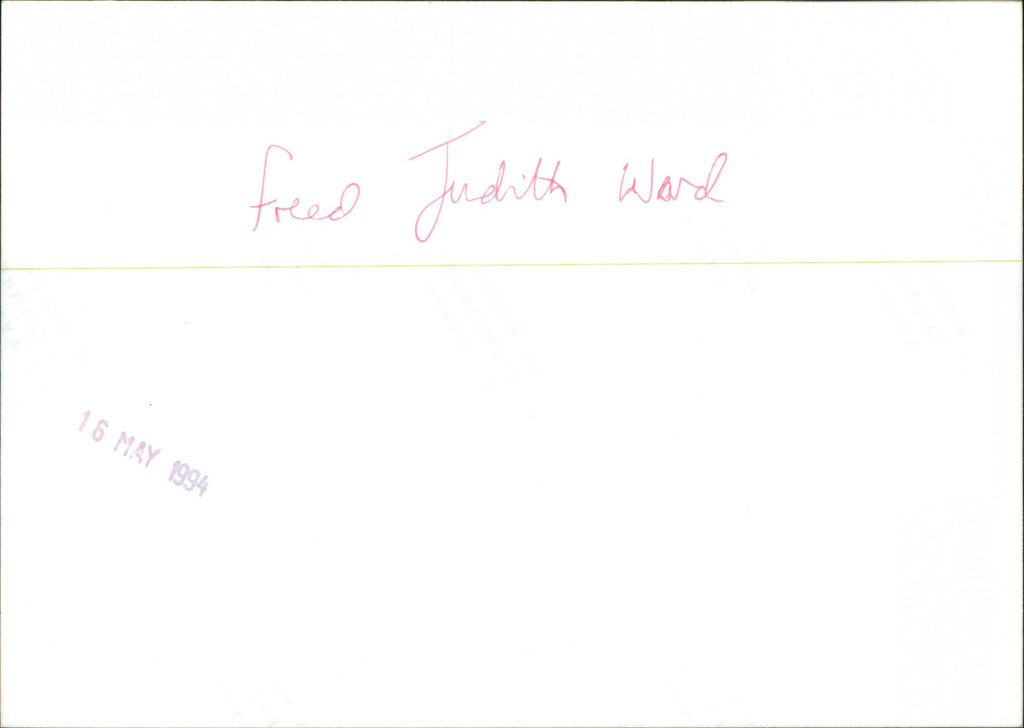 Freed Judith Ward
16 MAY 1994